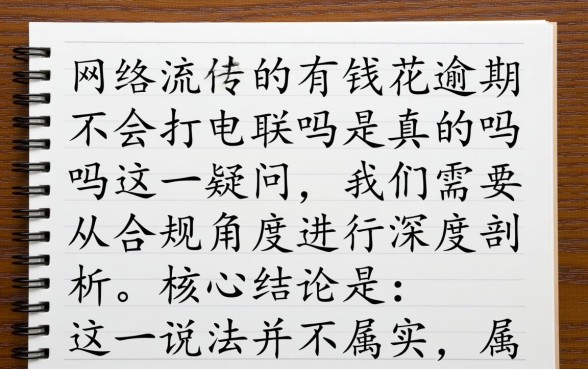 网络流传的有钱花逾期
不会打电联吗是真的吗
吗这一疑问，我们需要
从合规角度进行深度剖
析。核心结论是：
这一说法并不属实，属